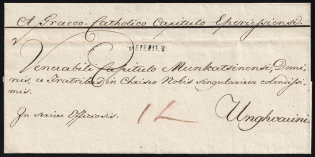 A Graeco Catholico Capitulo Eperjessiensi
EPERIES
Venerabili Capitulo Munkatsinensi, Domi-
nis ac Fratribus in Christo Nobis singulariter colendissi-
mis.
In merito Officiosis.
Unghvarini
12